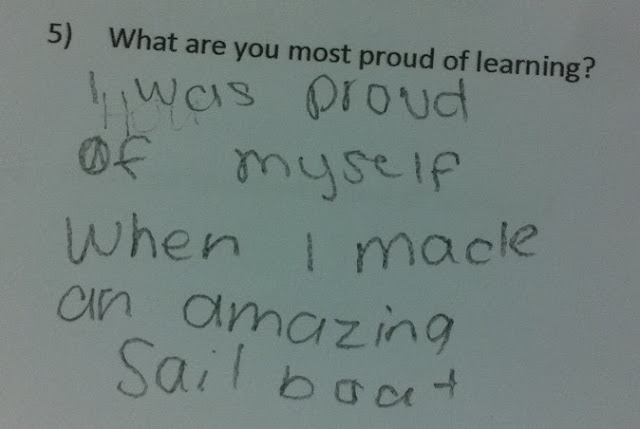 5) What are you most proud of learning?
I was proud
of myself
When I made
an amazing
Sail boat